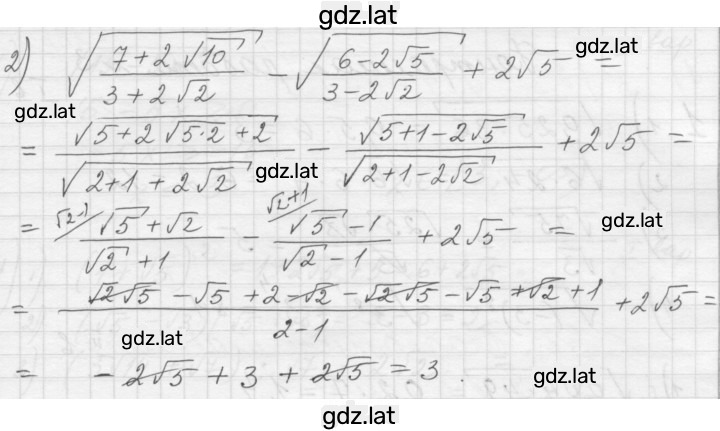 gdz.lat
2) √((7+2√10)/(3+2√2)) - √((6-2√5)/(3-2√2)) + 2√5 =
gdz.lat
gdz.lat
= √(5+2√(5·2)+2)/√(2+1+2√2) - √(5+1-2√5)/√(2+1-2√2) + 2√5 =
gdz.lat
= √2-1/ (√5+√2)/(√2+1) - √2+1/ (√5-1)/(√2-1) + 2√5 =
gdz.lat
= (√2√5 - √5 + 2 - √2 - √2√5 - √5 + √2 + 1)/(2-1) + 2√5 =
gdz.lat
= -2√5 + 3 + 2√5 = 3.
gdz.lat
gdz.lat